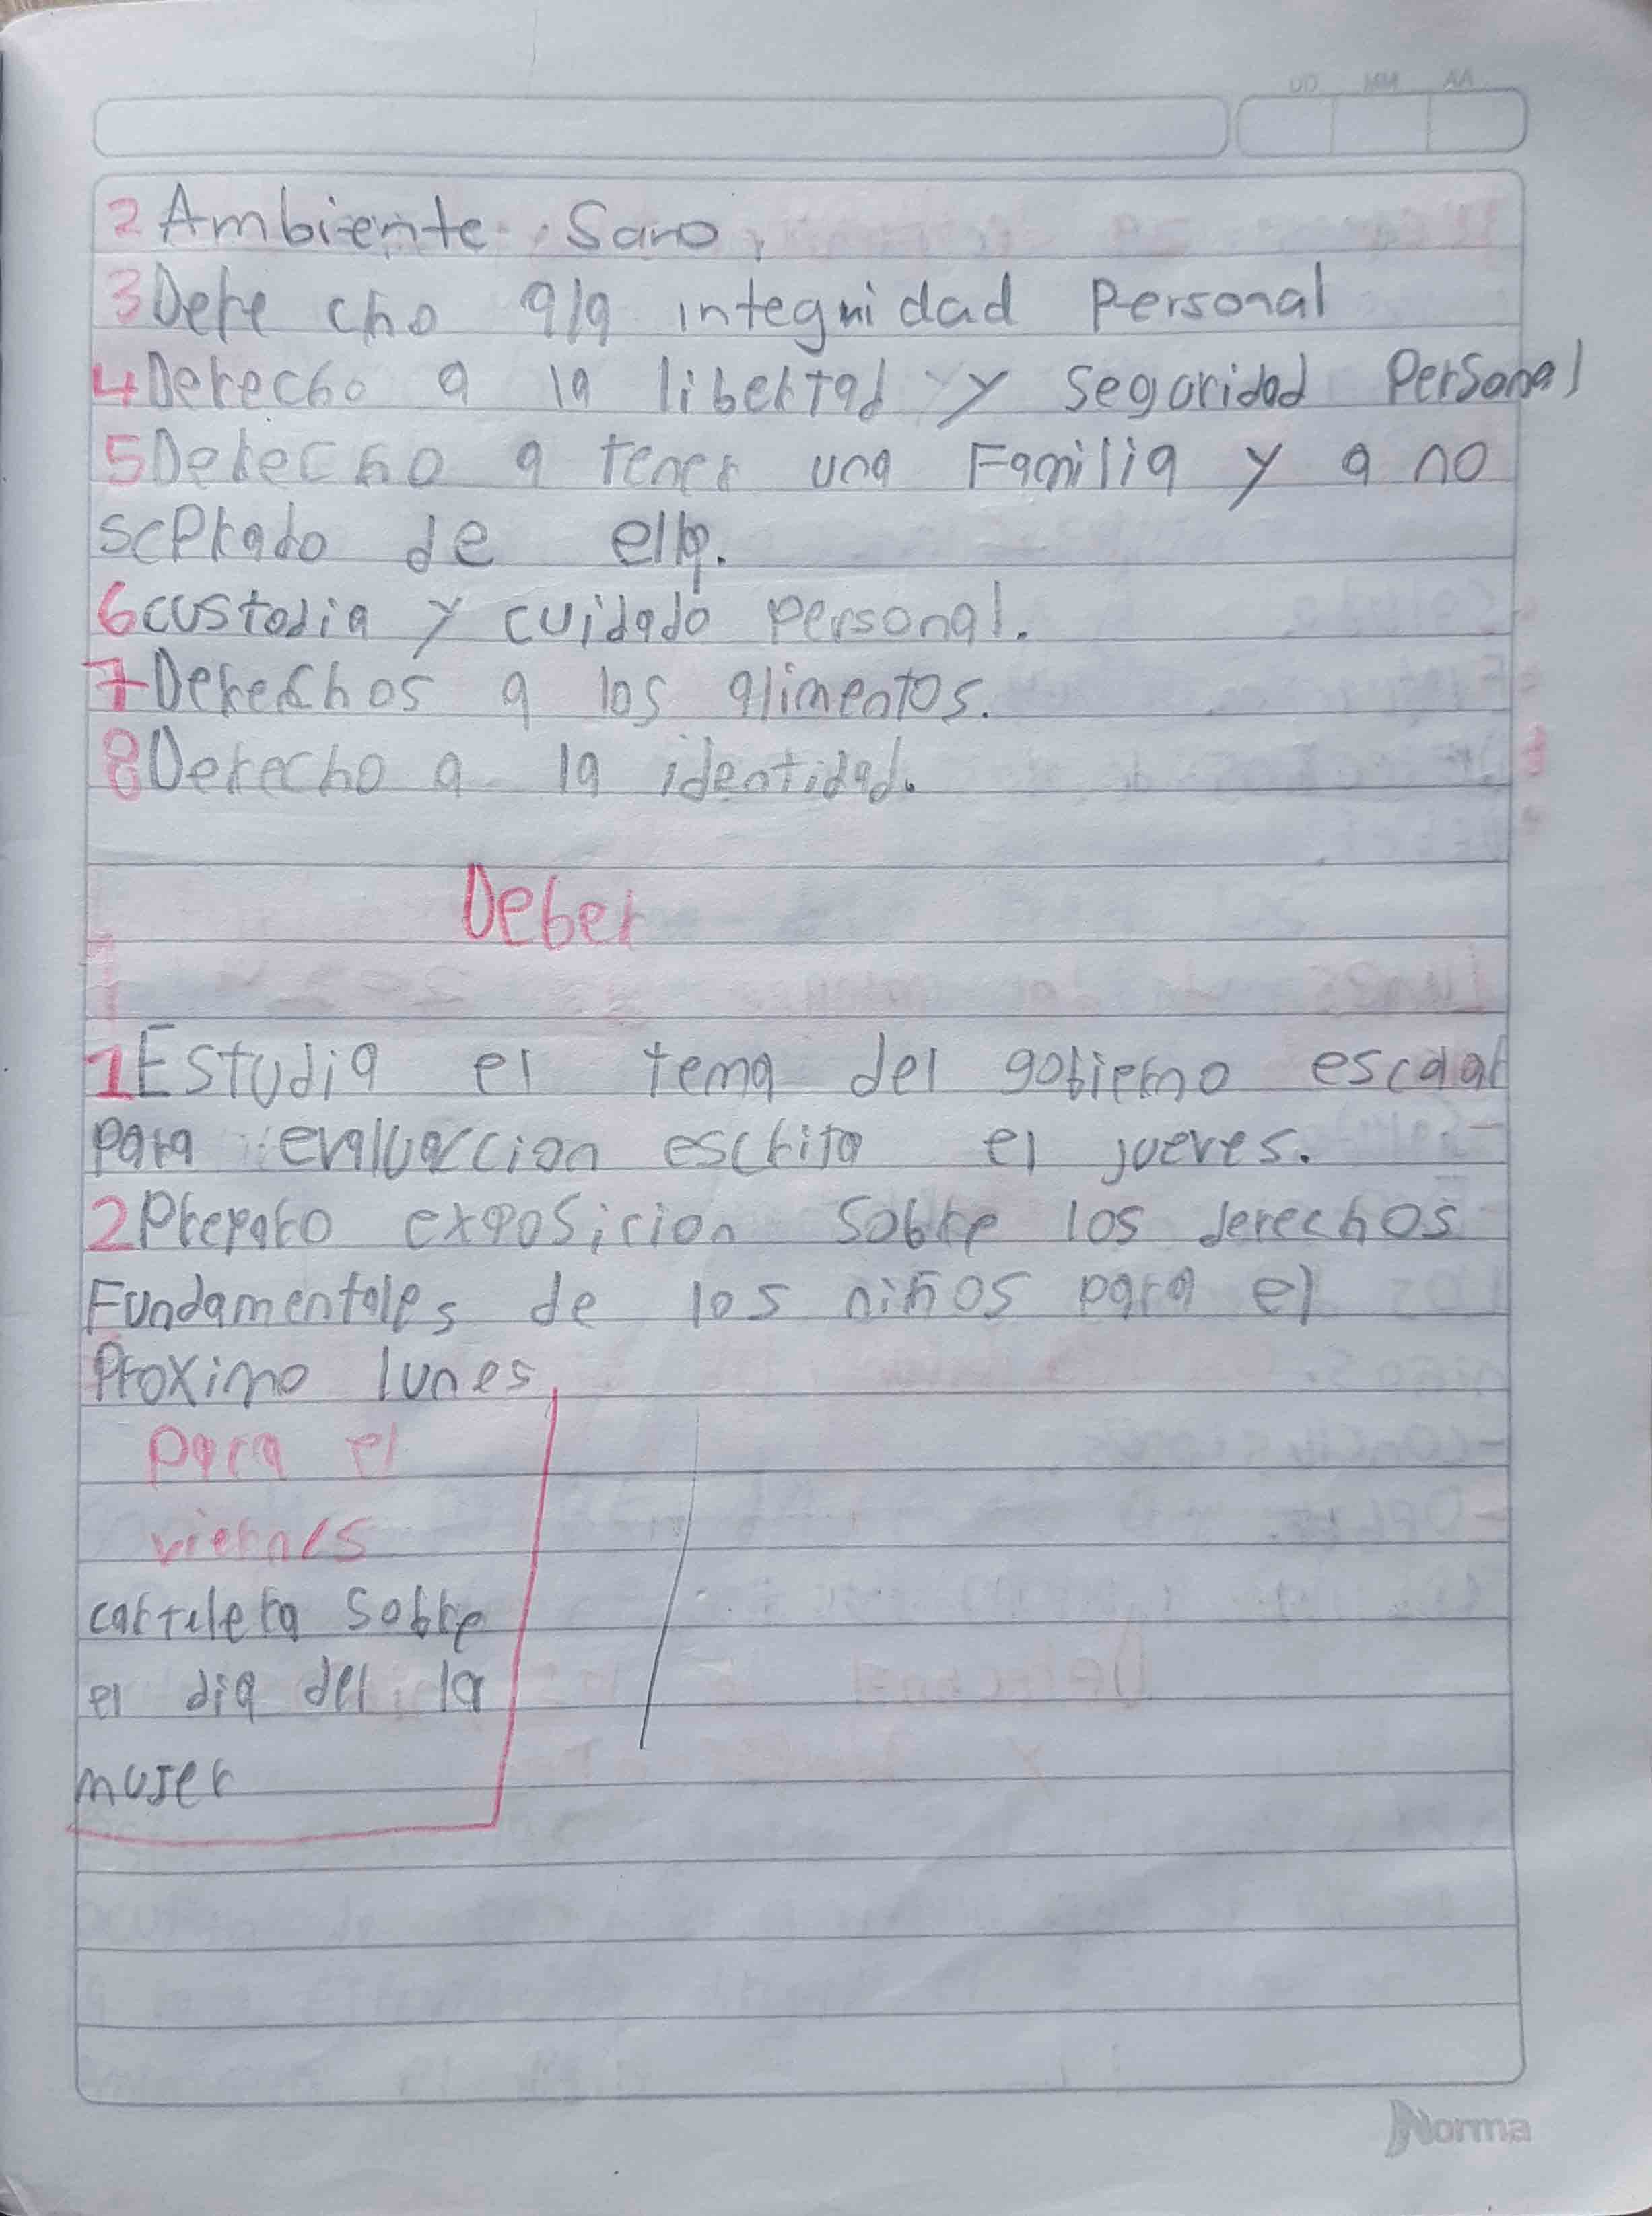 2 Ambiente Sano,
3 Dere cho a la integridad Personal
4 Derecho a la libertad y y Seguridad Personal
5 Derecho a tener una Familia y a no
seprado de ella.
6 custodia y cuidado personal.
7 Derechos a los alimentos.
8 Derecho a la identidad.
Deber
1 Estudia el tema del gobierno escolar
para evaluaccion escrita el jueves.
2 Preparo exposicion Sobre los derechos
Fundamentales de los niños para el
Proximo lunes
para el
viernes
cartelera Sobre
el dia del la
mujer
Norma